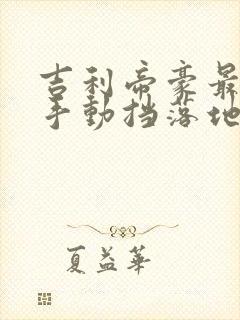 吉利帝豪最
手动挡落地
夏益华